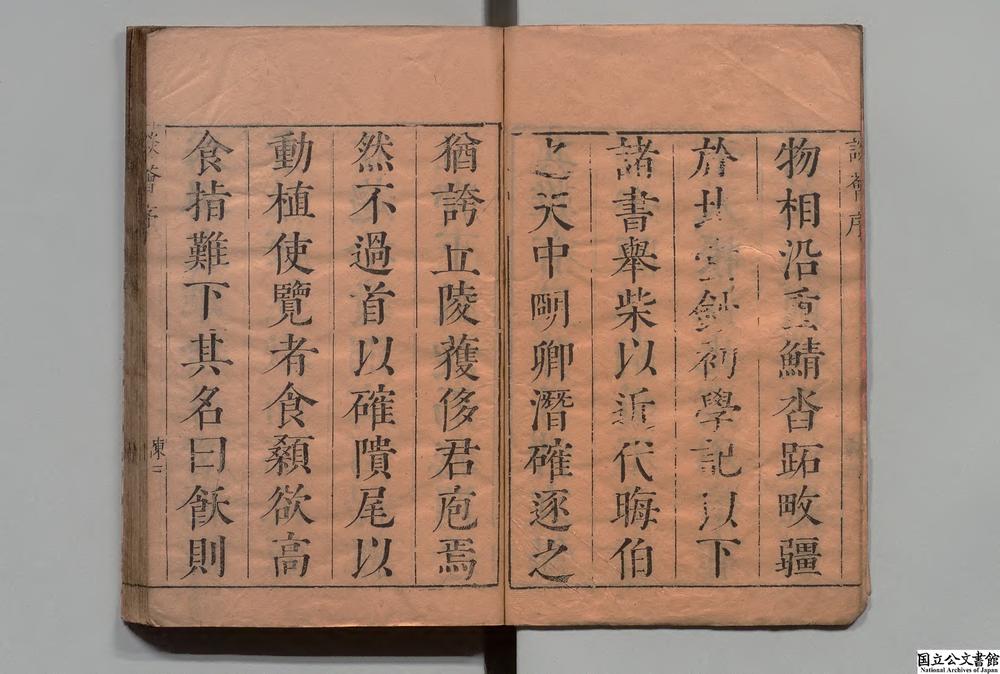 物相沿重鯖沓跖畋疆
於北堂鈔初學記以下
諸書舉柴以近代晦伯
之天中明卿潛確逐之
猶誇丘陵獲侈君庖焉
然不過首以確隤尾以
動植使覽者食顙欲高
食指難下其名曰飫則
談薈序
陳二
国立公文書館
National Archives of Japan